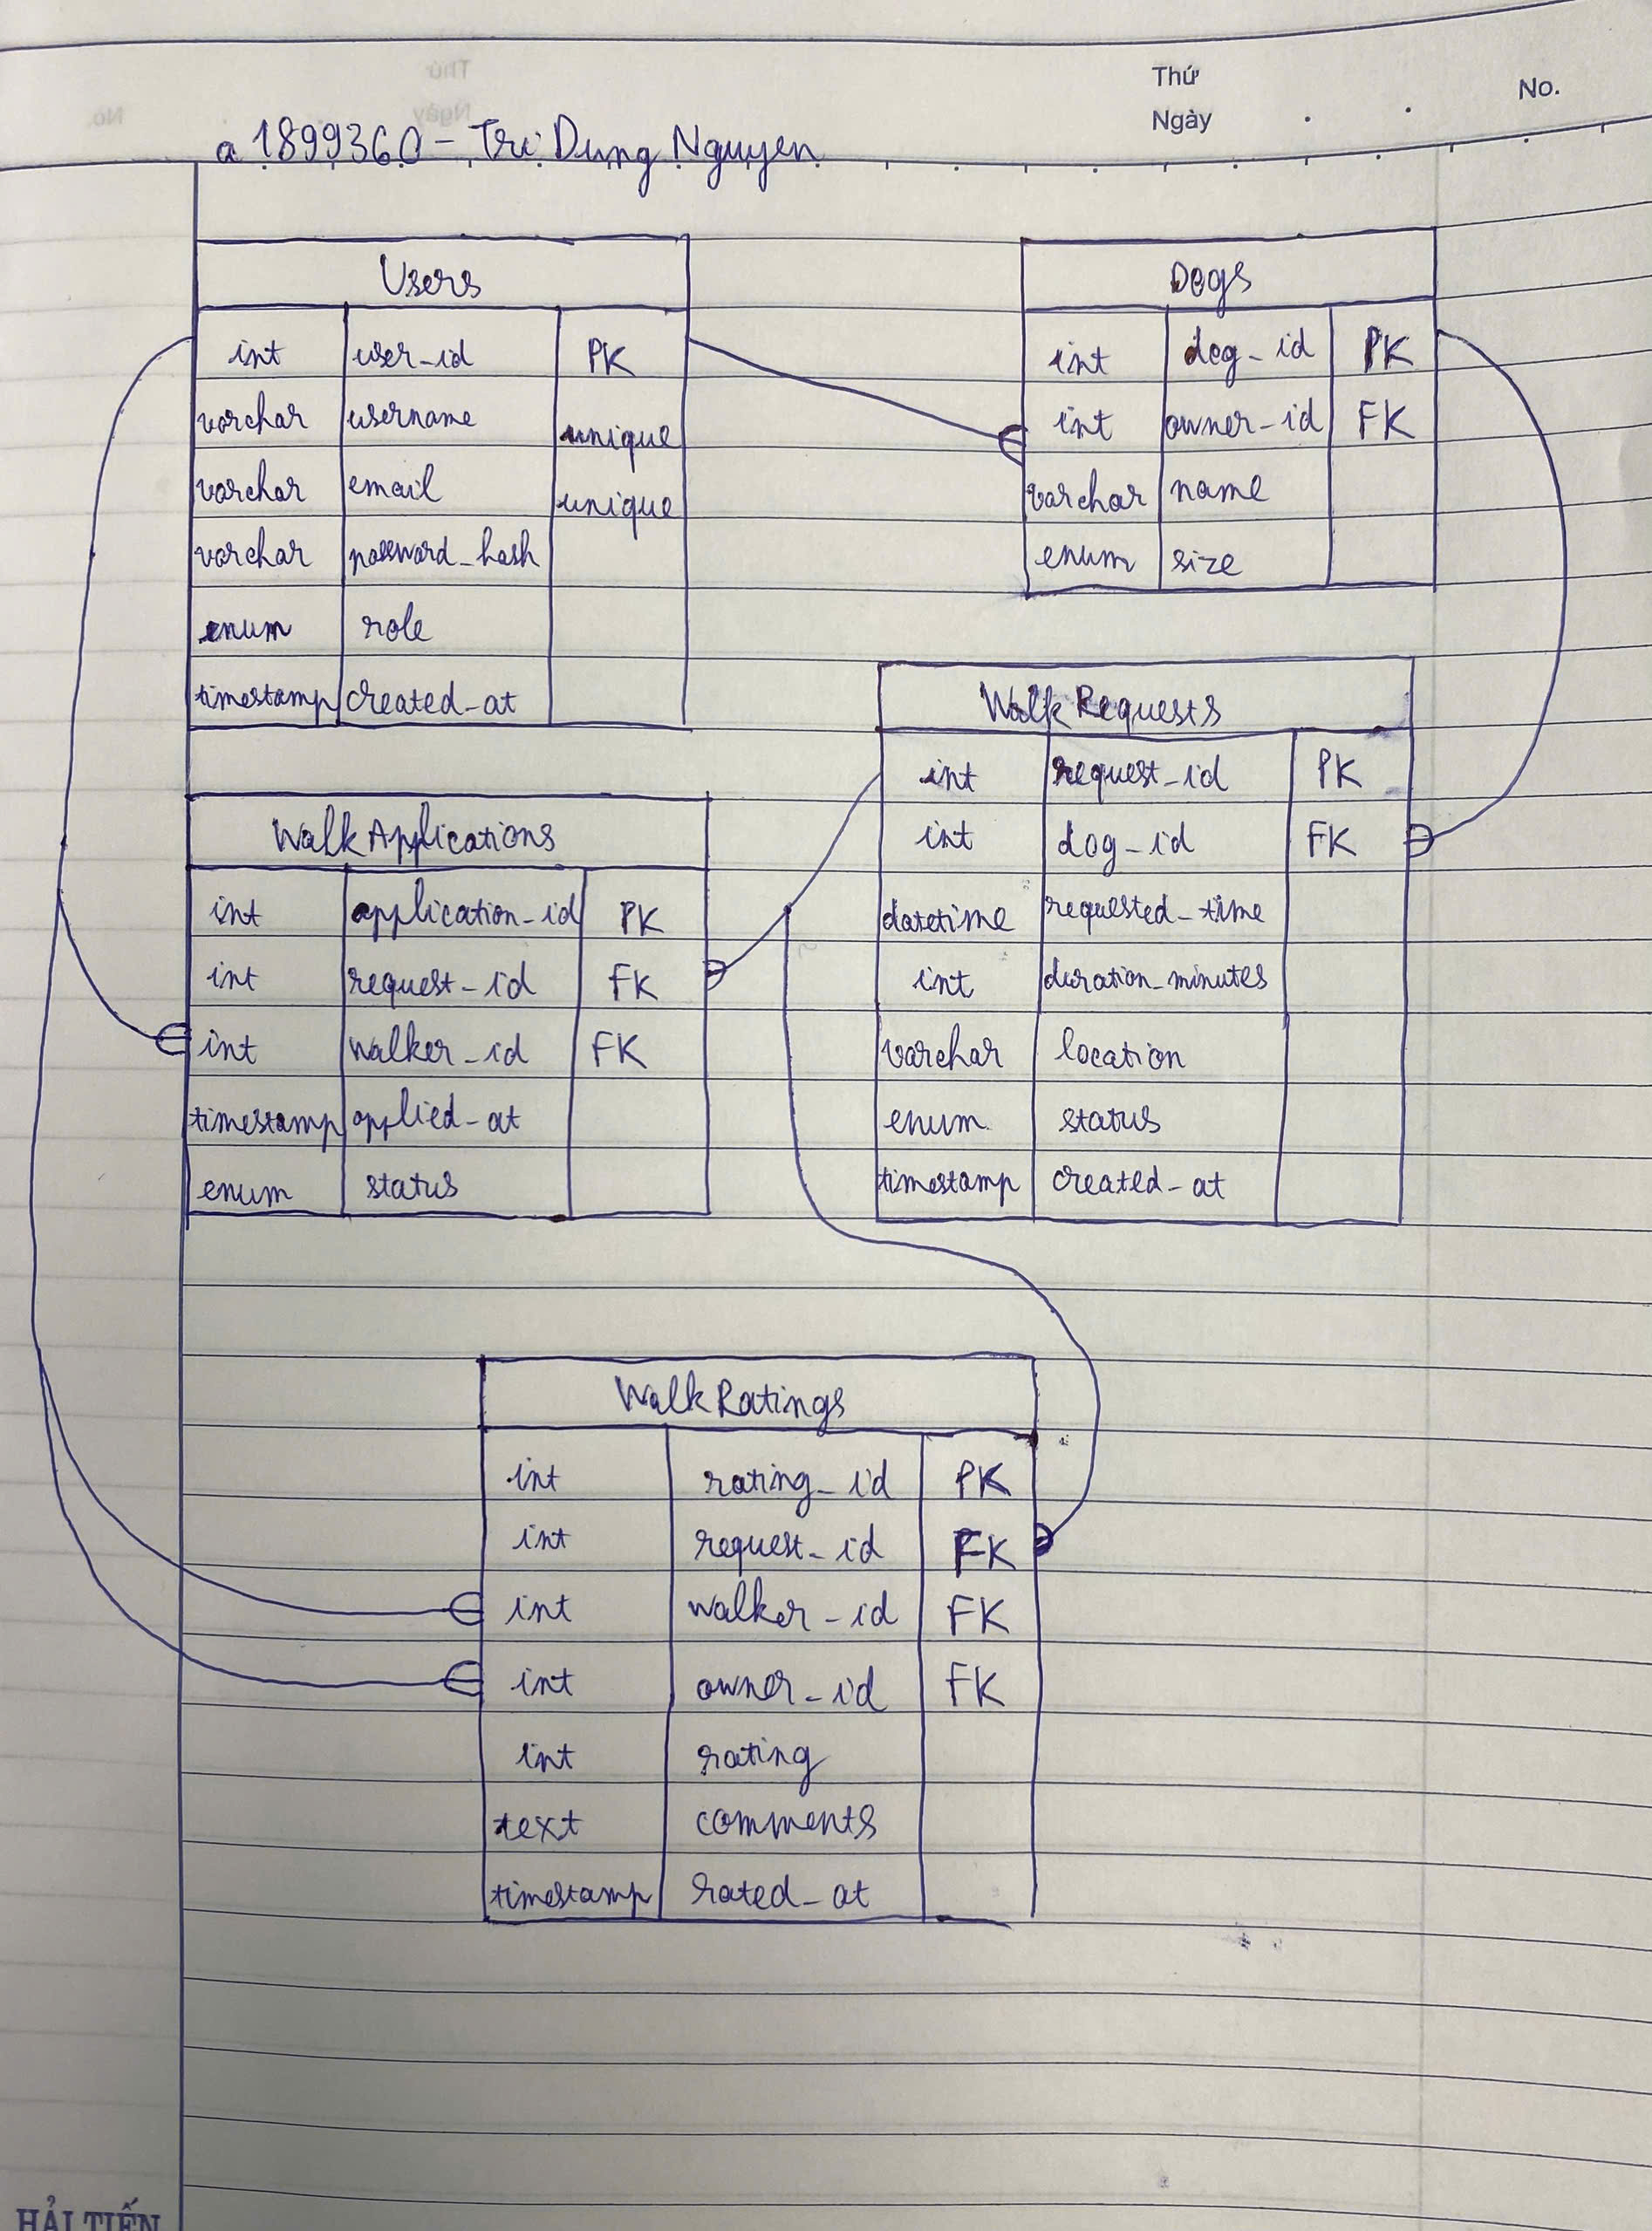 Thứ
Ngày
No.
a1899360 - Tri Dung Nguyen
Users
int user_id PK
varchar username unique
varchar email unique
varchar password_hash
enum role
timestamp created_at
Dogs
int dog_id PK
int owner_id FK
varchar name
enum size
Walk Requests
int request_id PK
int dog_id FK
datetime requested_time
int duration_minutes
varchar location
enum status
timestamp created_at
Walk Applications
int application_id PK
int request_id FK
int walker_id FK
timestamp applied_at
enum status
Walk Ratings
int rating_id PK
int request_id FK
int walker_id FK
int owner_id FK
int rating
text comments
timestamp rated_at
HẢI TIẾN